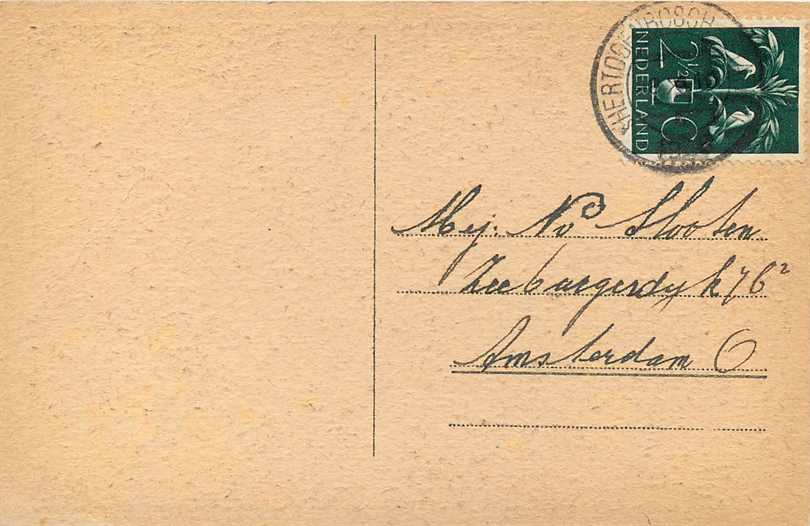 'S HERTOGENBOSCH
NEDERLAND
2½ C
Mej. No Slooten
Zeeburgerdyk 76²
Amsterdam O